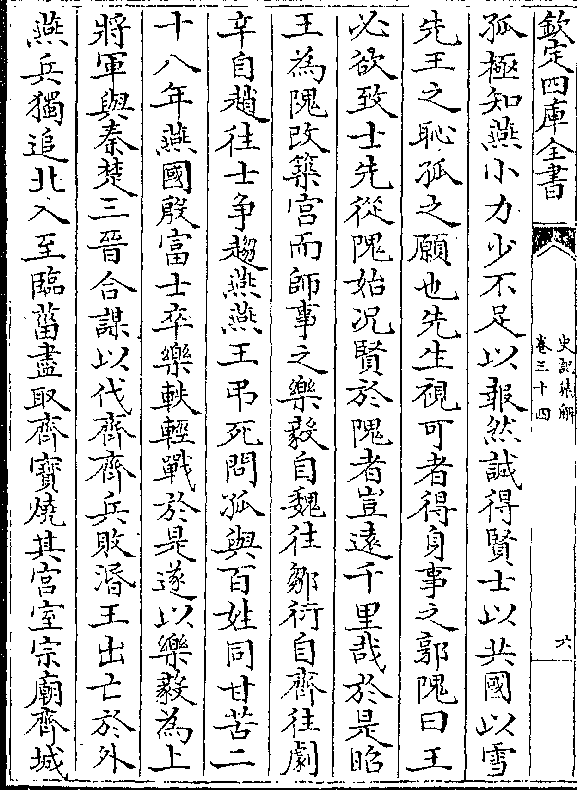 欽定四庫全書
史記集解
卷三十四
六
孤極知燕小力少不足以報然誠得賢士以共國以雪
先王之恥孤之願也先生視可者得身事之郭隗曰王
必欲致士先從隗始况賢於隗者豈遠千里哉於是昭
王為隗改築宮而師事之樂毅自魏往鄒衍自齊往劇
辛自趙往士争趨燕燕王弔死問孤與百姓同甘苦二
十八年燕國殷富士卒樂軼輕戰於是遂以樂毅為上
將軍與秦楚三晉合謀以伐齊齊兵敗湣王出亡於外
燕兵獨追北入至臨菑盡取齊寶燒其宮室宗廟齊城